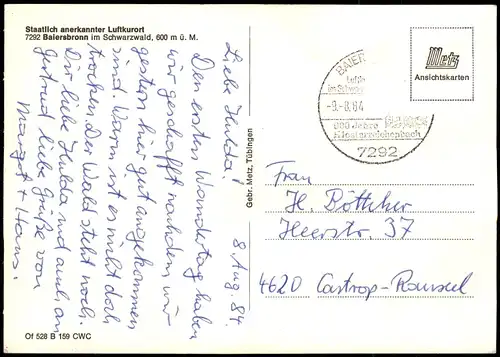 Staatlich anerkannter Luftkurort
7292 Baiersbronn im Schwarzwald, 600 m ü. M.
8. Aug. 84.
Liebe Hulda!
Den ersten Wandertag haben
wir geschafft nachdem wir
gestern hier gut angekommen
sind. Warm ist es nicht doch
trocken. Der Wald steht noch.
Dir liebe Hulda und auch an
Gertrud liebe Grüße von
Margot + Hans.
Of 528 B 159 CWC
Gebr. Metz, Tübingen
BAIER
Luftk
im Schwar
-9.-8.84
Jahre
Klosterreichenbach
7292
Metz
Ansichtskarten
Frau
H. Böttcher
Heerstr. 37
4620 Castrop-Rauxel